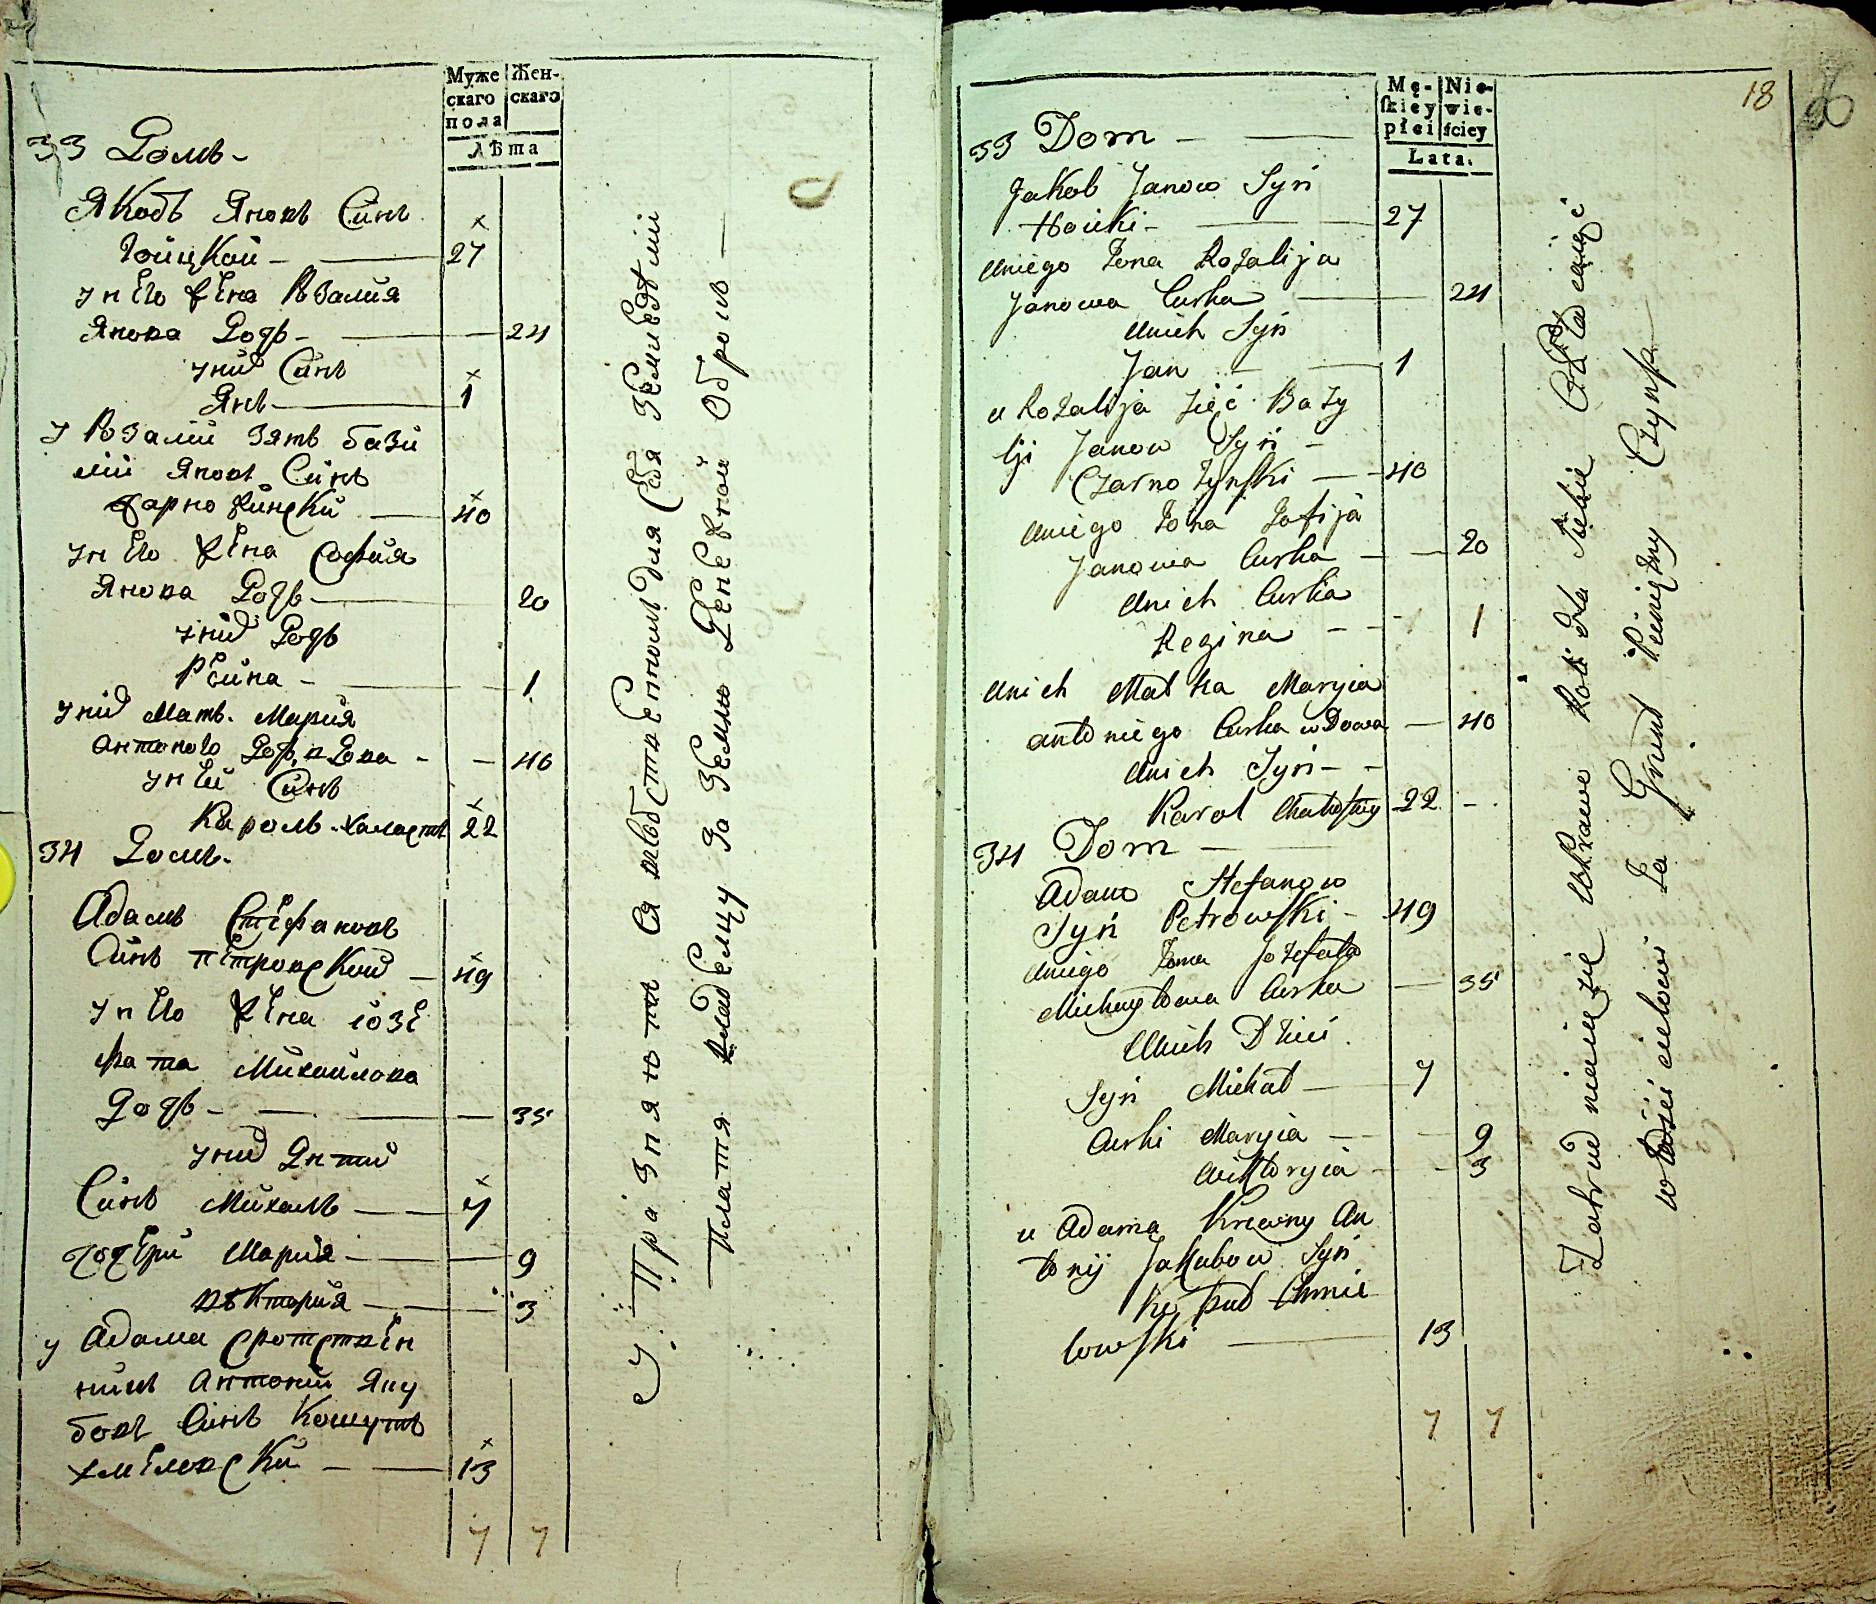 Муже
скаго
пола
Жен-
скаго
Лѣта
33 Домъ -
Якобъ Яновъ Синъ
27
у нЕго жЕна Розалия
Янова Дочь - 24
у ниӣ Синъ
Янъ 1
у Розалии Зять бази
лии Яновъ Синъ
Чарножински 40
у нЕго жЕна София
Янова Дочь 20
у ниӣ Дочь
РЕгина - 1
у ниӣ Мать. Мария
Антонего Дочь вдова - 40
у нЕи Синъ
Кароль 22
34 Домъ.
Адамъ СтЕфановъ
Синъ ПЕтровский 49
у нЕго жЕна iозЕ
фата Михайлова
Дочь - 35
у ниӣ Дити
Синъ Михалъ 7
дочЕри Мария 9
вЪктория 3
у Адама сротствЕн
никъ Антоний Яку
бовъ Синъ Кошутъ
хмЕлевски 13
7 7
Упразняютъ ся
для СЕбя
Платя владЕлцу За ЗЕмлю ДЕнЕжной Оброкъ
Mę-
skiey
płci
Nie-
wie-
ściey
Lata.
18
33 Dom
Jakob Janow Syn
27
uniego Żona Rozalija
Janowa Curka 24
unich Syn
Jan 1
u Rozalija zięć Bazy
lji Janow Syn -
Czarnożynski 40
uniego Żona Zofija
Janowa Curka 20
unich Curka
Regina 1
unich Matka Maryia
antoniego Curka wdowa 40
unich Syn
Karol 22
34 Dom
Adam Stefanow
Syn Petrowski - 49
unigo Żona Jozefata
Michayłowa Curka 35
Unich Dzieci
Syn Michał 7
Curki Maryia 9
Wiktoryia 3
u Adama Krewny An
tonij Jakubow Syn
Chmie
lowski 13
7 7
Zatrudnieniu się
Roli dla Siebie
Za Grunt Pieniężny Czynsz